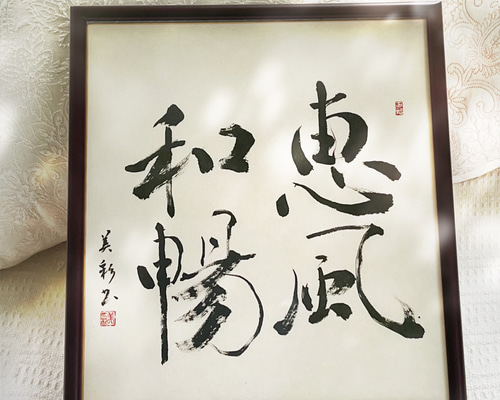 惠風
和暢
美彩书